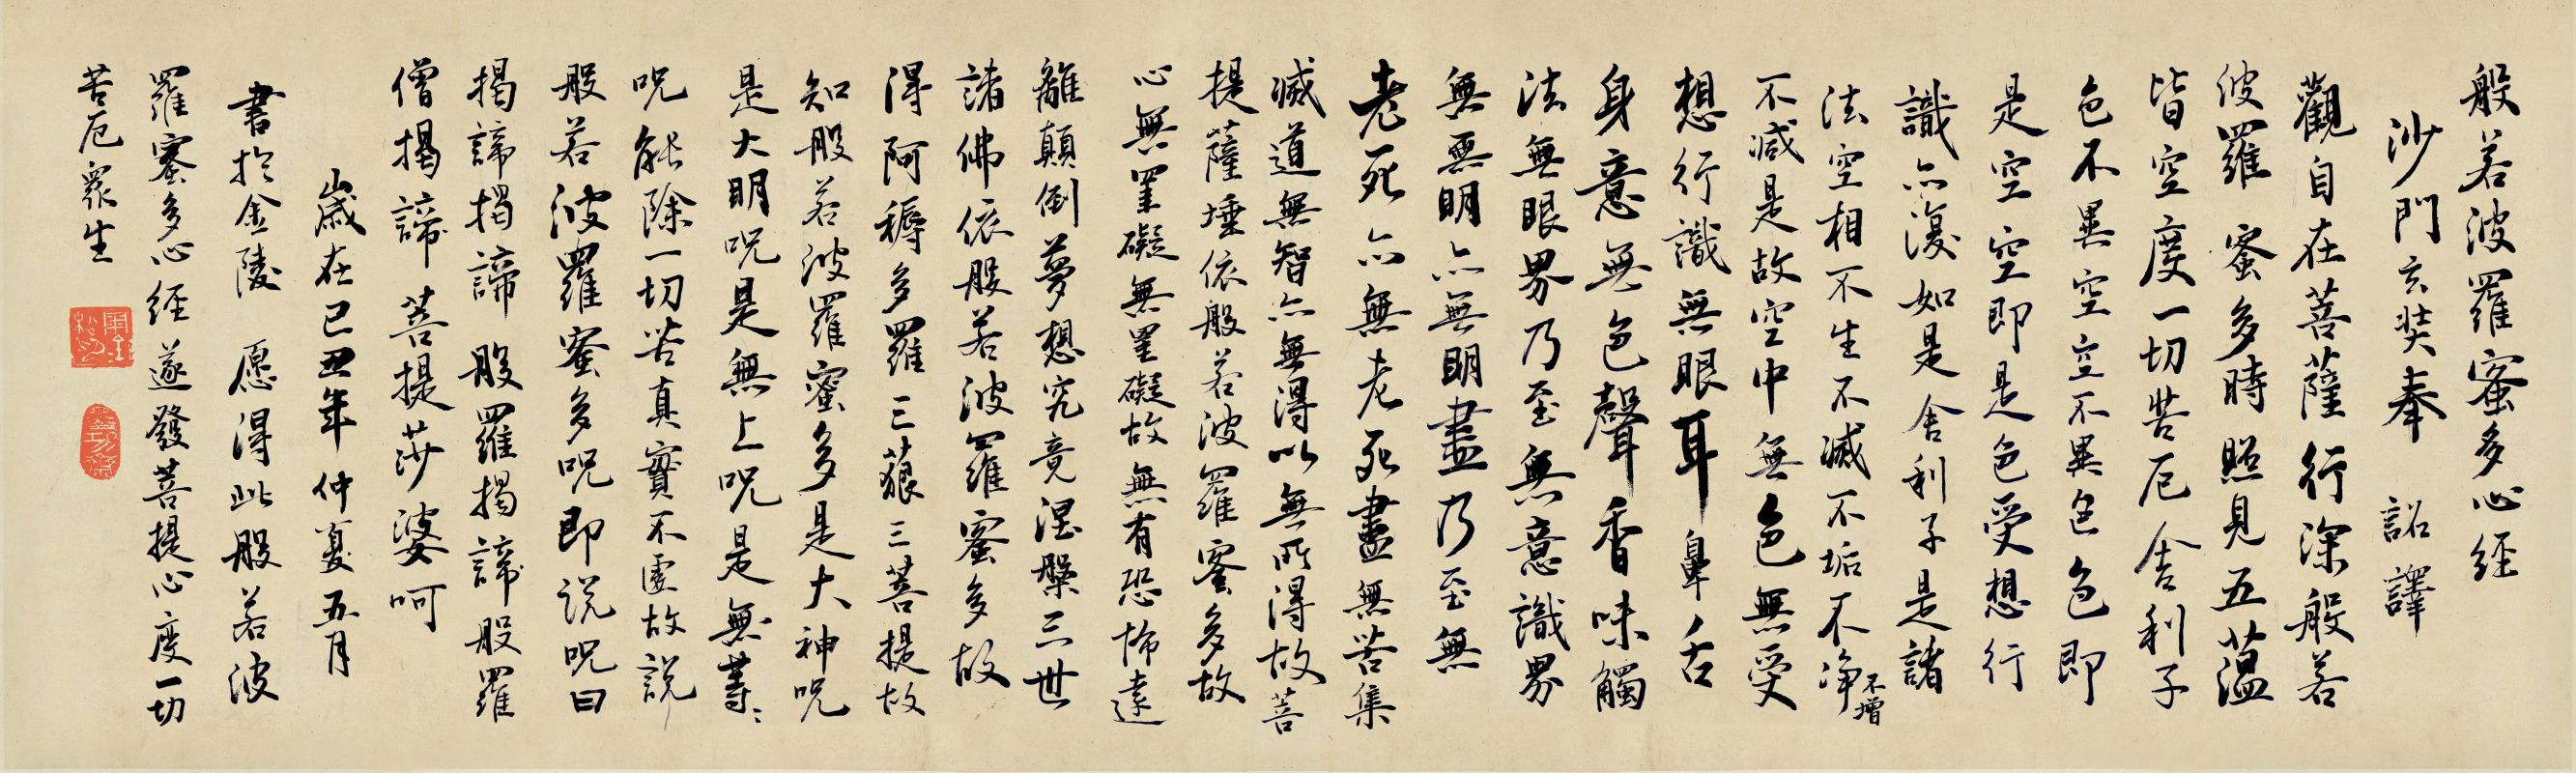 般若波羅蜜多心経
沙門玄奘奉 詔譯
觀自在菩薩行深般若
波羅蜜多時照見五蘊
皆空度一切苦厄舍利子
色不異空空不異色色即
是空空即是色受想行
識亦復如是舍利子是諸
法空相不生不滅不垢不淨不增
不減是故空中無色無受
想行識無眼耳鼻舌
身意無色聲香味觸
法無眼界乃至無意識界
無無明亦無明盡乃至無
老死亦無老死盡無苦集
滅道無智亦無得以無所得故菩
提薩埵依般若波羅蜜多故
心無罣礙無罣礙故無有恐怖遠
離顛倒夢想究竟涅槃三世
諸佛依般若波羅蜜多故
得阿耨多羅三藐三菩提故
知般若波羅蜜多是大神呪
是大明呪是無上呪是無等:
呪能除一切苦真實不虛故說
般若波羅蜜多呪即說呪曰
揭諦揭諦 般羅揭諦般羅
僧揭諦 菩提莎婆呵
歲在己丑年仲夏五月
書於金陵 愿得此般若波
羅蜜多心経 遂發菩提心度一切
苦厄眾生